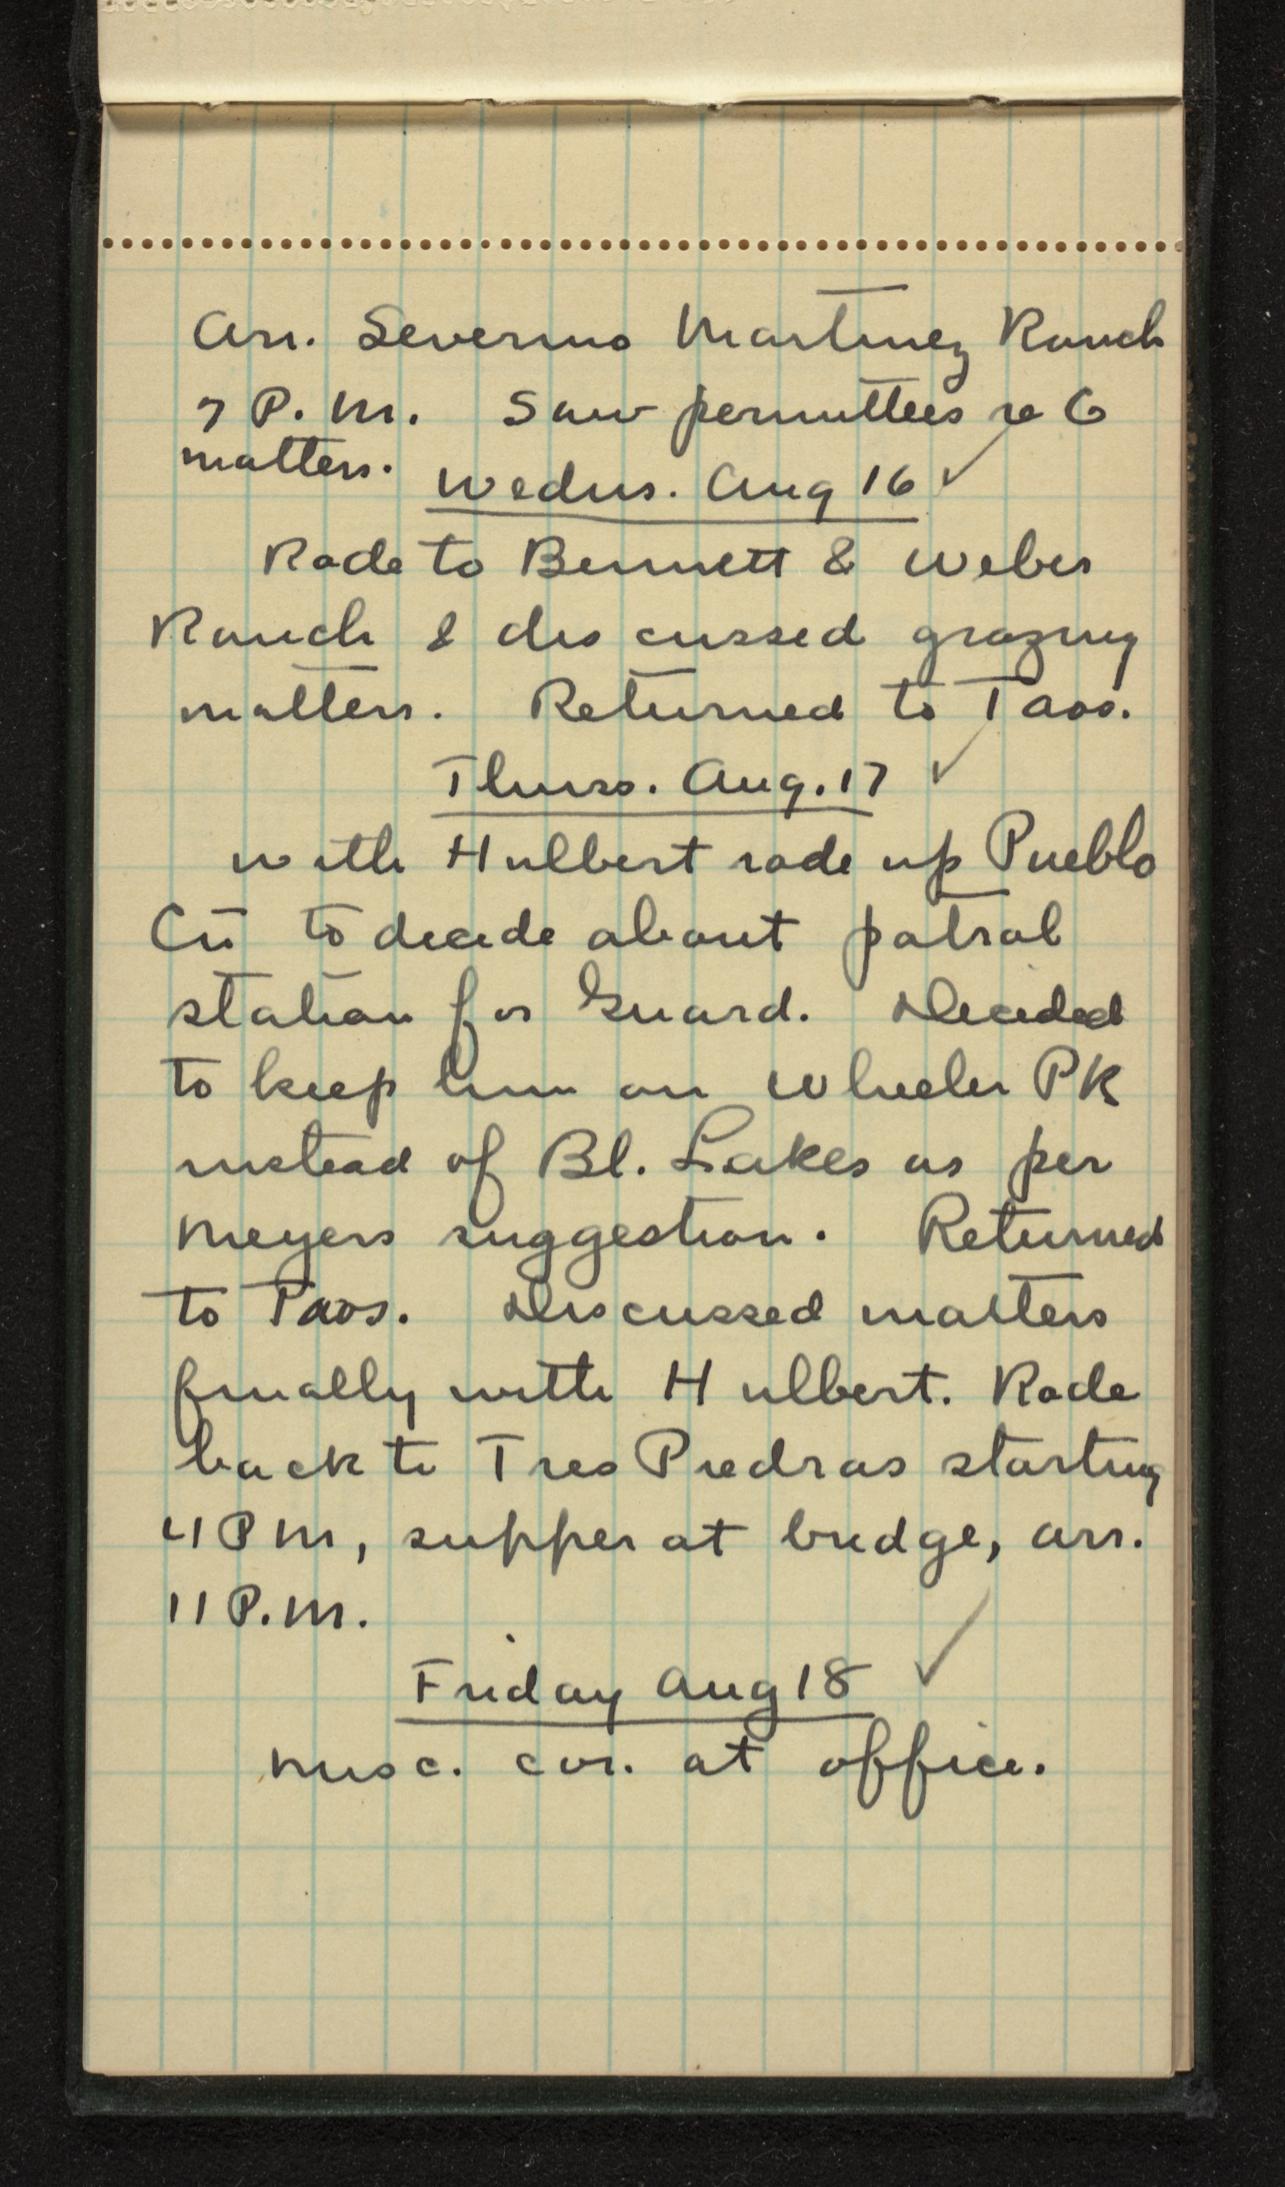 Arr. Severino Martinez Ranch
7 P.M. Saw permittees re G
matters.
Wednes. Aug 16 ✓
Rode to Bennett & Weber
Ranch & discussed grazing
matters. Returned to Taos.
Thurs. Aug. 17 ✓
With Hulbert rode up Pueblo
Cñ to decide about patrol
station for Guard. Decided
to keep him on Wheeler PK
instead of Bl. Lakes as per
Meyers suggestion. Returned
to Taos. Discussed matters
finally with Hulbert. Rode
back to Tres Piedras starting
4 PM, supper at bridge, arr.
11 P.M.
Friday Aug 18 ✓
Misc. cor. at office.